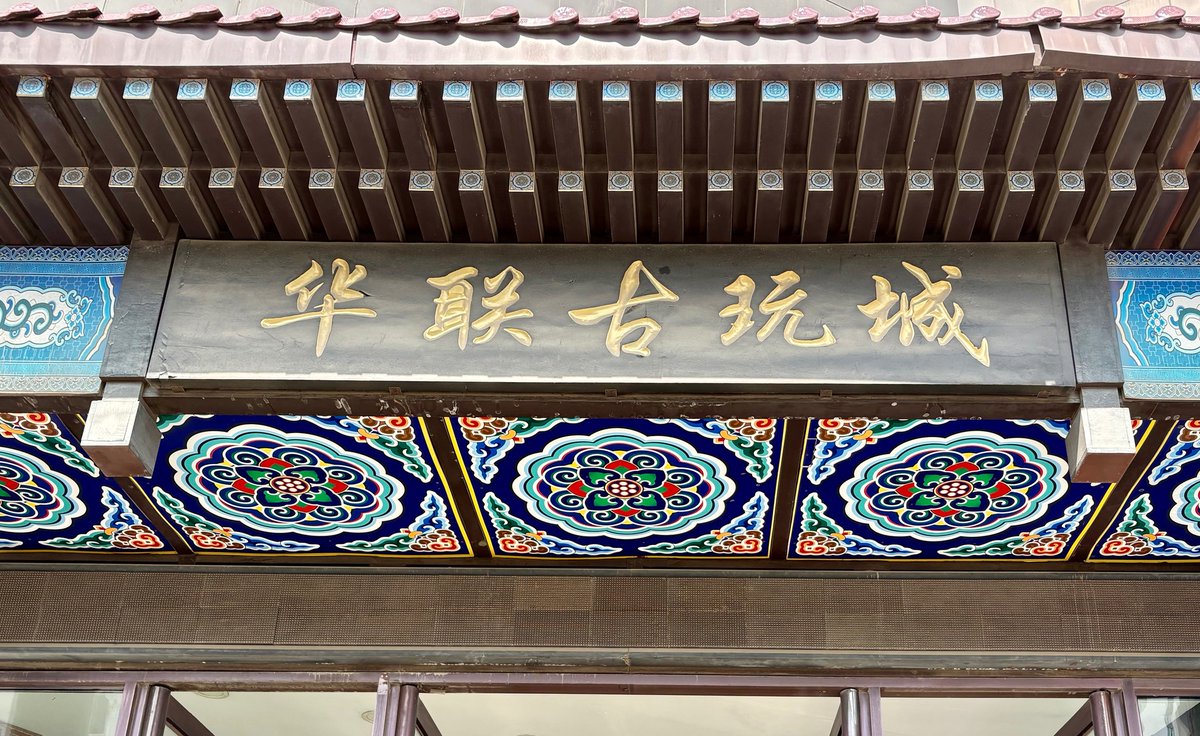 华联古玩城